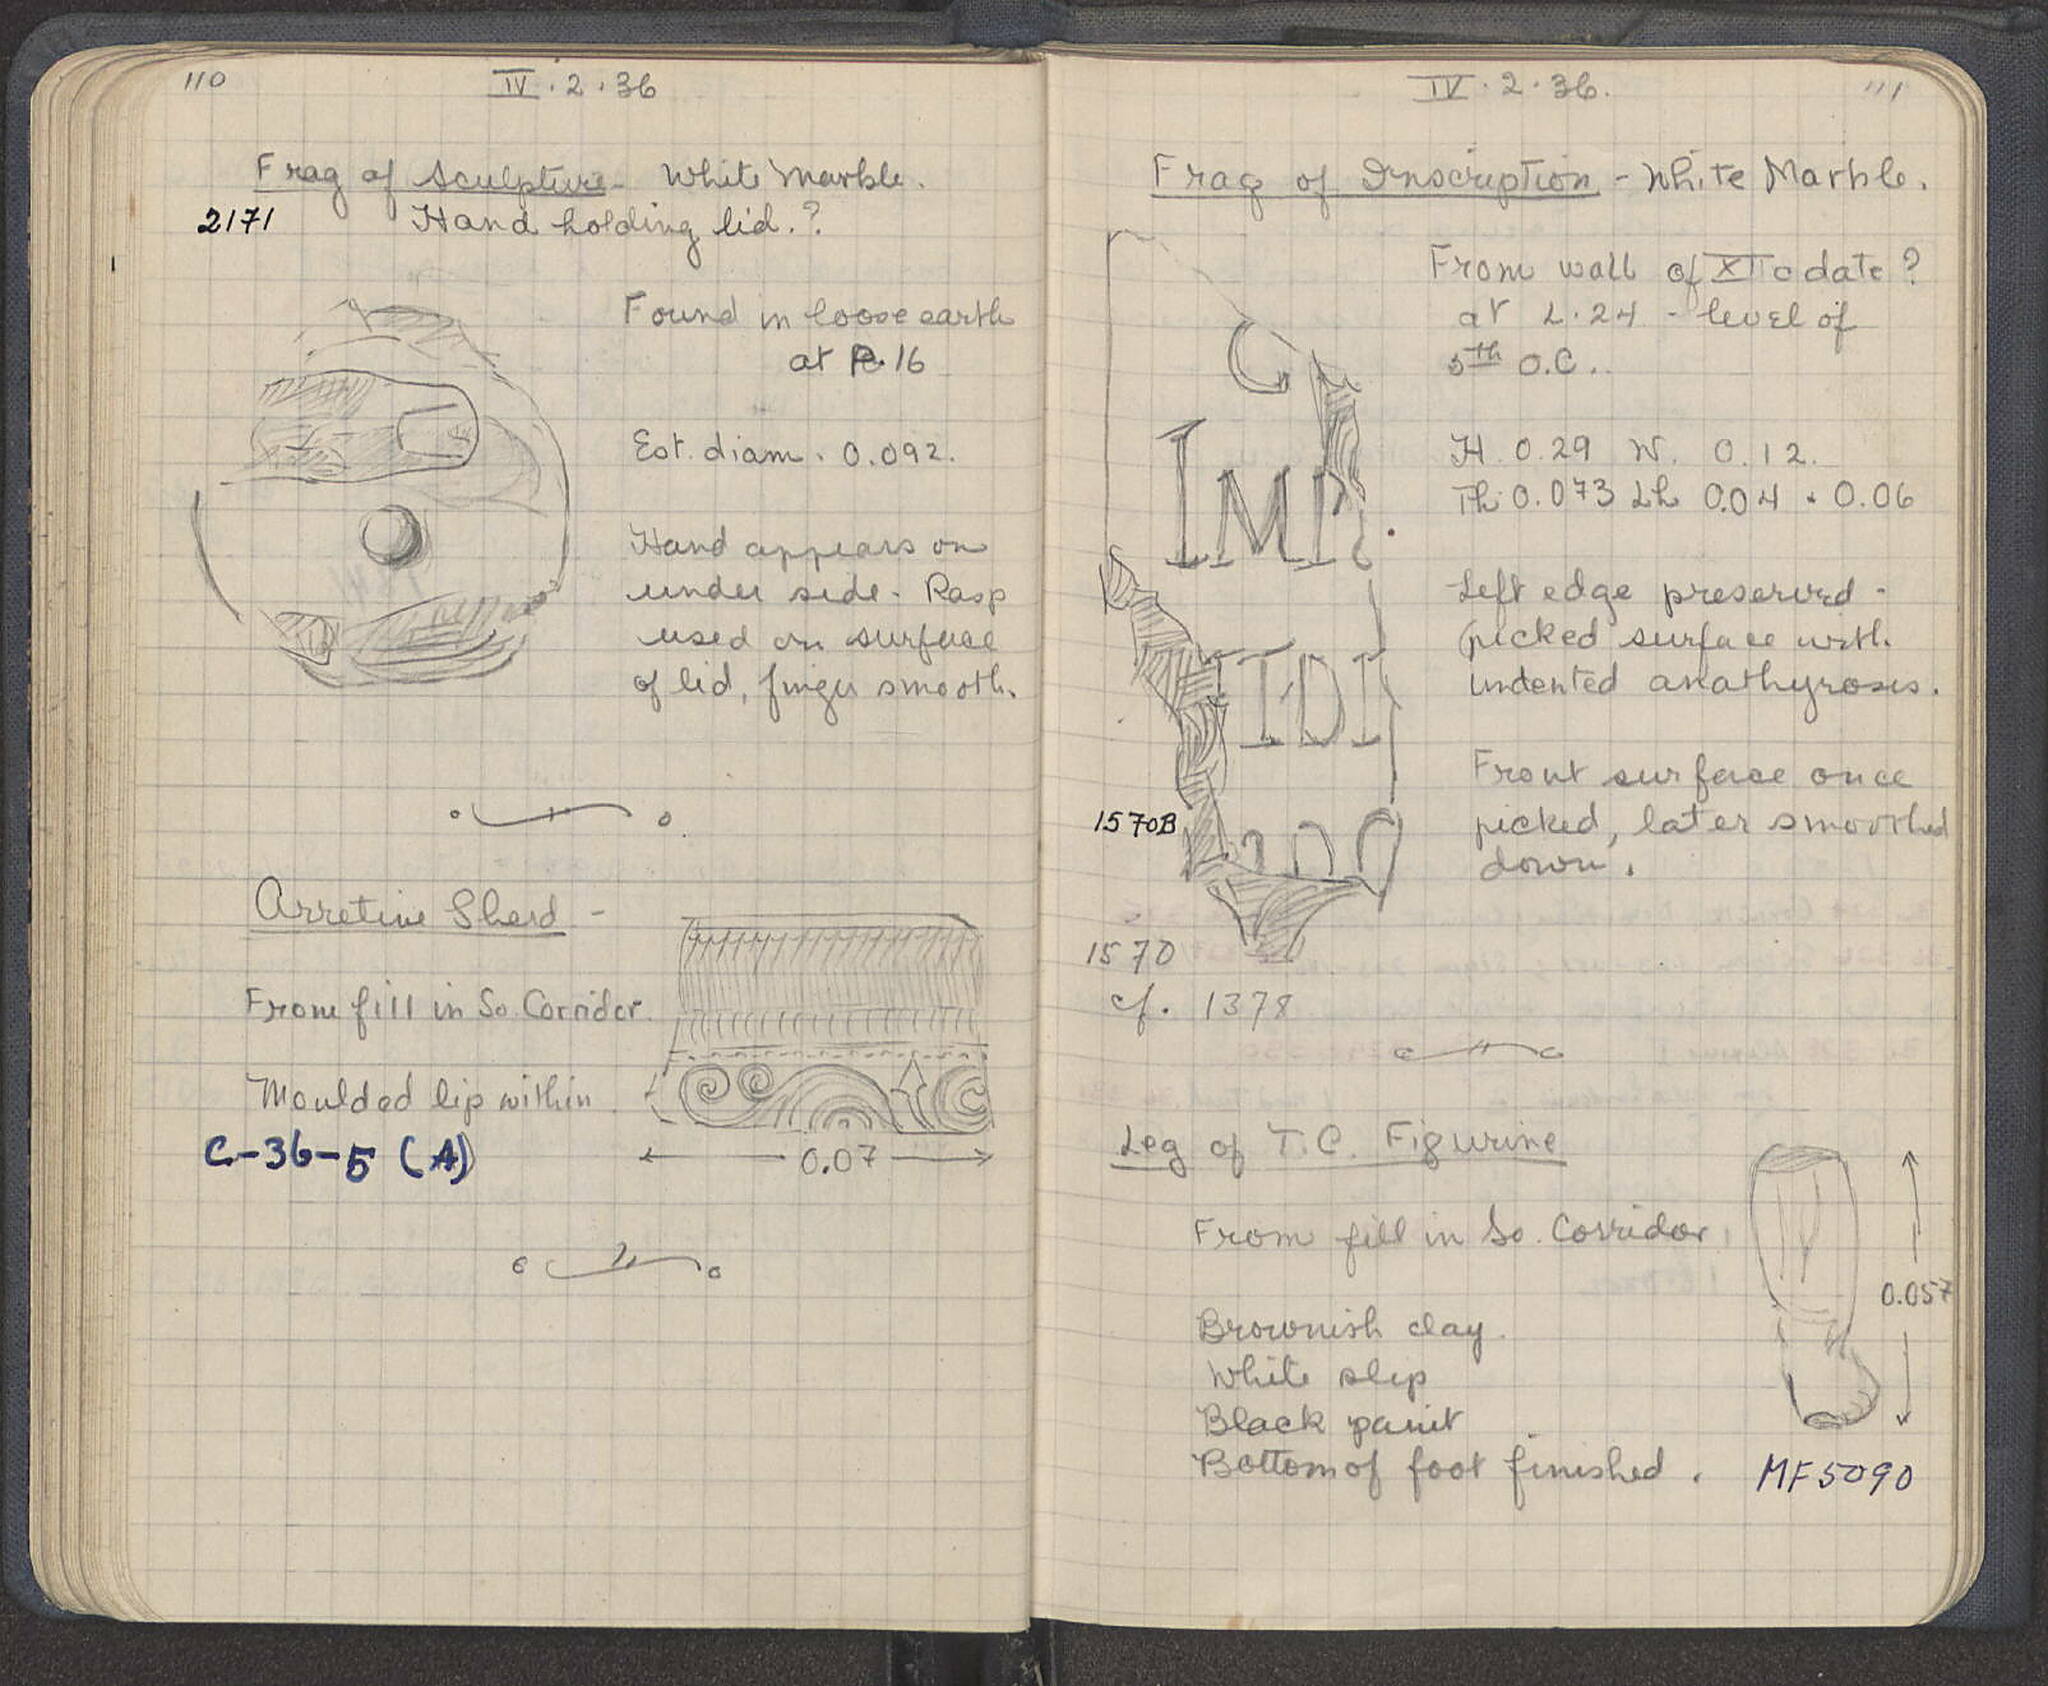 110
IV . 2 . 36
Frag of Sculpture - White Marble.
2171 Hand holding lid. ?
Found in loose earth
at P. 16
Est. diam. 0.092.
Hand appears on
under side - Rasp
used on surface
of lid, finger smooth.
Arretine Sherd -
From fill in So. Corridor.
Moulded lip within
C-36-5 (A)
0.07
IV . 2 . 36.
111
Frag of Inscription - White Marble.
From wall of XII c date ?
at L. 24 - level of
5th O.C..
H. 0.29 W. 0.12.
Th. 0.073 Lh 0.04 - 0.06
Left edge preserved -
picked surface with
indented anathyrosis.
Front surface once
picked, later smoothed
down.
C
IMP
IDI
1570B
1570
cf. 1378
Leg of T.C. Figurine
From fill in So. Corridor.
0.057
Brownish clay.
White slip
Black paint
Bottom of foot finished.
MF 5090